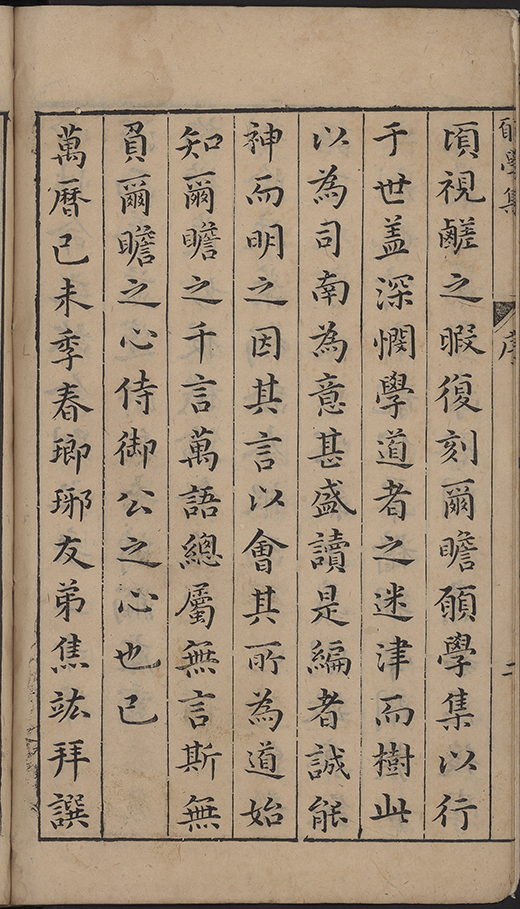 願學集
序
二
頃視鹺之暇復刻爾瞻願學集以行
于世盖深憫學道者之迷津而樹此
以為司南為意甚盛讀是編者誠能
神而明之因其言以會其所為道始
知爾瞻之千言萬語總屬無言斯無
負爾瞻之心侍御公之心也已
萬曆己未季春瑯琊友弟焦竑拜譔